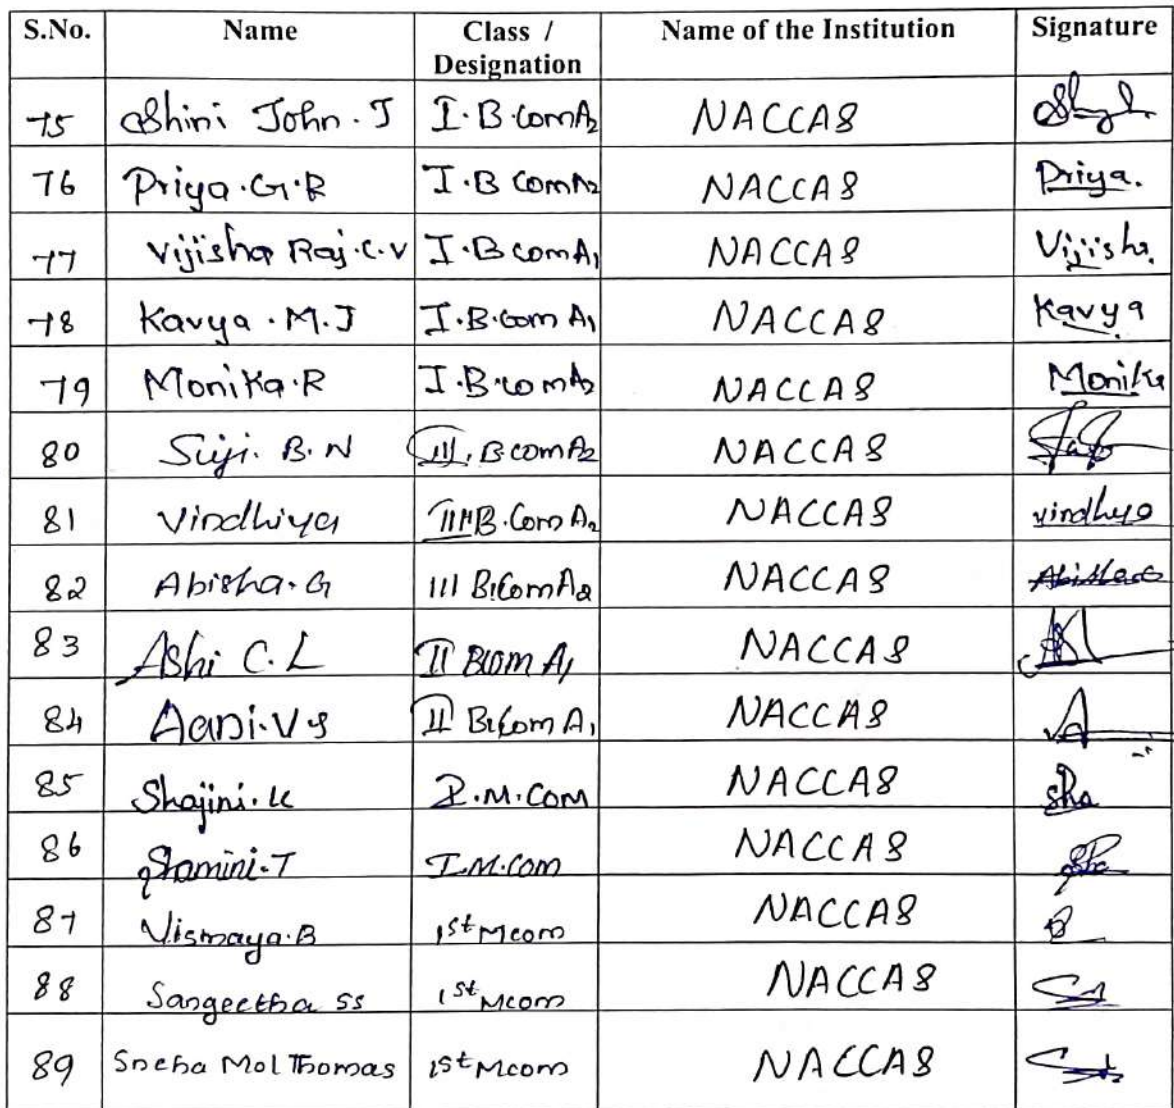 S.No. Name Class / Designation Name of the Institution Signature
75 Shini John. J I. B.Com A2 NACCAS
76 Priya. G.R I.B Com A2 NACCAS Priya.
77 Vijisha Raj. C.V I.B com A1 NACCAS Vijisha.
78 Kavya. M.J I.B.Com A1 NACCAS Kavya
79 Monika.R I.B.com A2 NACCAS Monika
80 Suji. B.N III. B.com A2 NACCAS
81 Vindhiya III B.Com A2 NACCAS vindhya
82 Abisha.G III B.Com A2 NACCAS
83 Ashi C.L II B.com A1 NACCAS
84 V S II B.Com A1 NACCAS
85 Shajini. K I.M.Com NACCAS Sha
86 Shamini.T I.M.com NACCAS Sha
87 Vismaya.B 1st Mcom NACCAS
88 Sangeetha SS 1st Mcom NACCAS
89 Sneha Mol Thomas 1st Mcom NACCAS